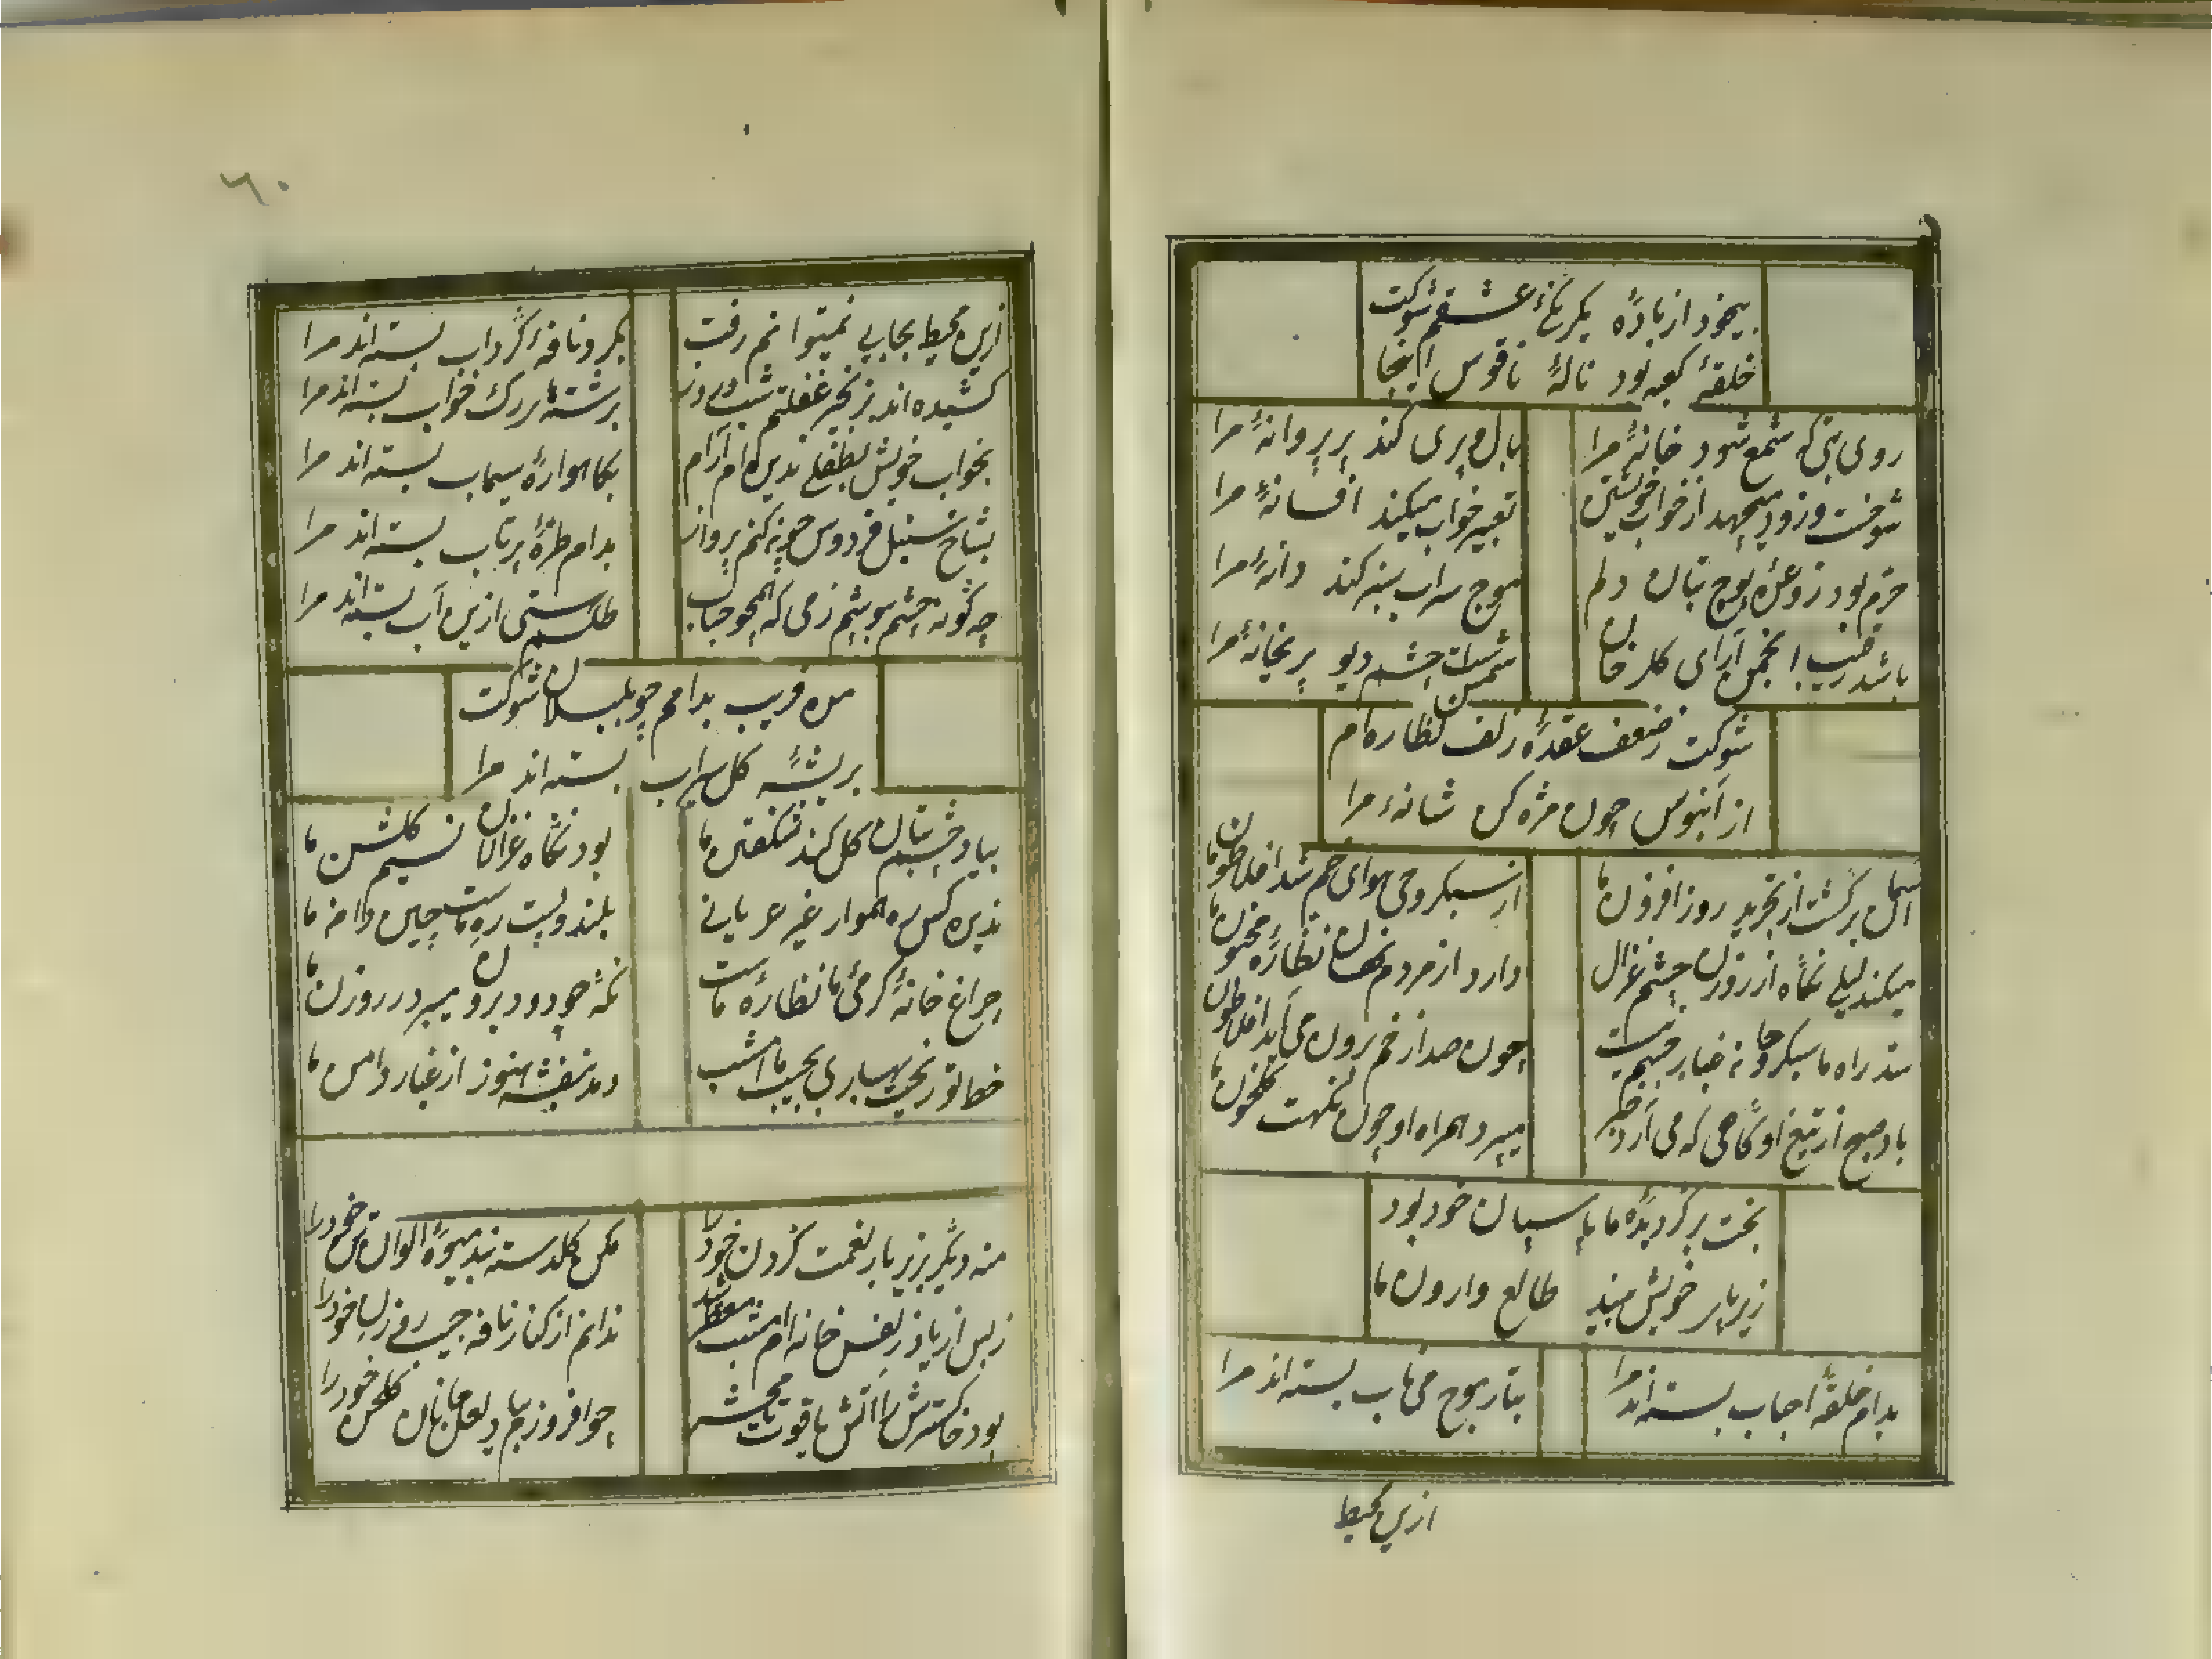 بیخود از بادهٔ یکرنگی عشقم شوکت
حلقهٔ کعبه بود نالهٔ ناقوس اینجا
روی بتی که شمع شود خانهٔ مرا
بال پری کند پر پروانهٔ مرا
شوخست و زود میجهد از خواب خویشتن
تعبیر خواب میکند افسانهٔ مرا
خرم بود ز وعدهٔ پوچ بتان دلم
موج سراب سبز کند دانهٔ مرا
باشد رقیب انجمن آرای گلرخان
چشم دیو پریخانهٔ مرا
شوکت ز ضعف عقدهٔ زلف نظاره‌ام
از آبنوس چون مژه کن شانهٔ مرا
برگشت از تجرید روز افزون ما
از سبکروحی هوای خم شد افلاطون ما
میکند لیلی نگاه از روزن چشم غزال
دارد از مردم نهان نظارهٔ مجنون ما
سد راه ما سبکروحان غبار جسم نیست
چون صدا از خم برون می‌آید افلاطون ما
باد صبح از تیغ او گاهی که می‌آرد خبر
میپرد همراه او چون نکهت گل خون ما
بخت برگردیدهٔ ما پاسبان خود بود
زیر پای خویش بیند طالع وارون ما
بدام حلقهٔ احباب بسته‌اند مرا
بتار موج می ناب بسته‌اند مرا
ازین محیط
۶۰
ازین محیط بجایی نمیتوانم رفت
بگرد نافهٔ گرداب بسته‌اند مرا
کشیده‌اند بزنجیر غفلتم شب و روز
برشتهای رگ خواب بسته‌اند مرا
بخواب خویش بطفلی ندیده‌ام آرام
بگاهوارهٔ سیماب بسته‌اند مرا
بشاخ سنبل فردوس چون کنم پرواز
بدام طرهٔ پرتاب بسته‌اند مرا
چه گونه چشم بپوشم ز می که همچو حباب
طلسم هستی ازین آب بسته‌اند مرا
من فریب بدامم چو بلبلان شوکت
بریشهٔ گل سیراب بسته‌اند مرا
بیاد چشم بتان گل کند شکفتن ما
بود نگاه غزالان نسیم گلشن ما
ندیده کس ره هموار غیر عریانی
بلند و پست ره ماست چین دامن ما
چراغ خانهٔ گرمی ما نظارهٔ ماست
نگه چو دود برون میرود ز روزن ما
خط تو ریخت بهاری بجیب ما امشب
دمد بنفشه هنوز از غبار دامن ما
منه دیگر بزیر بار نعمت گردن خود را
مکن گلدسته بند میوهٔ الوان تن خود را
ز بس از یاد زلفش خانه‌ام امشب معطر شد
ندانم از کنار نافه چین روزن خود را
بود خاکسترش آتش یاقوت تا محشر
چو افروزم بیاد لعل جانان گلخن خود را